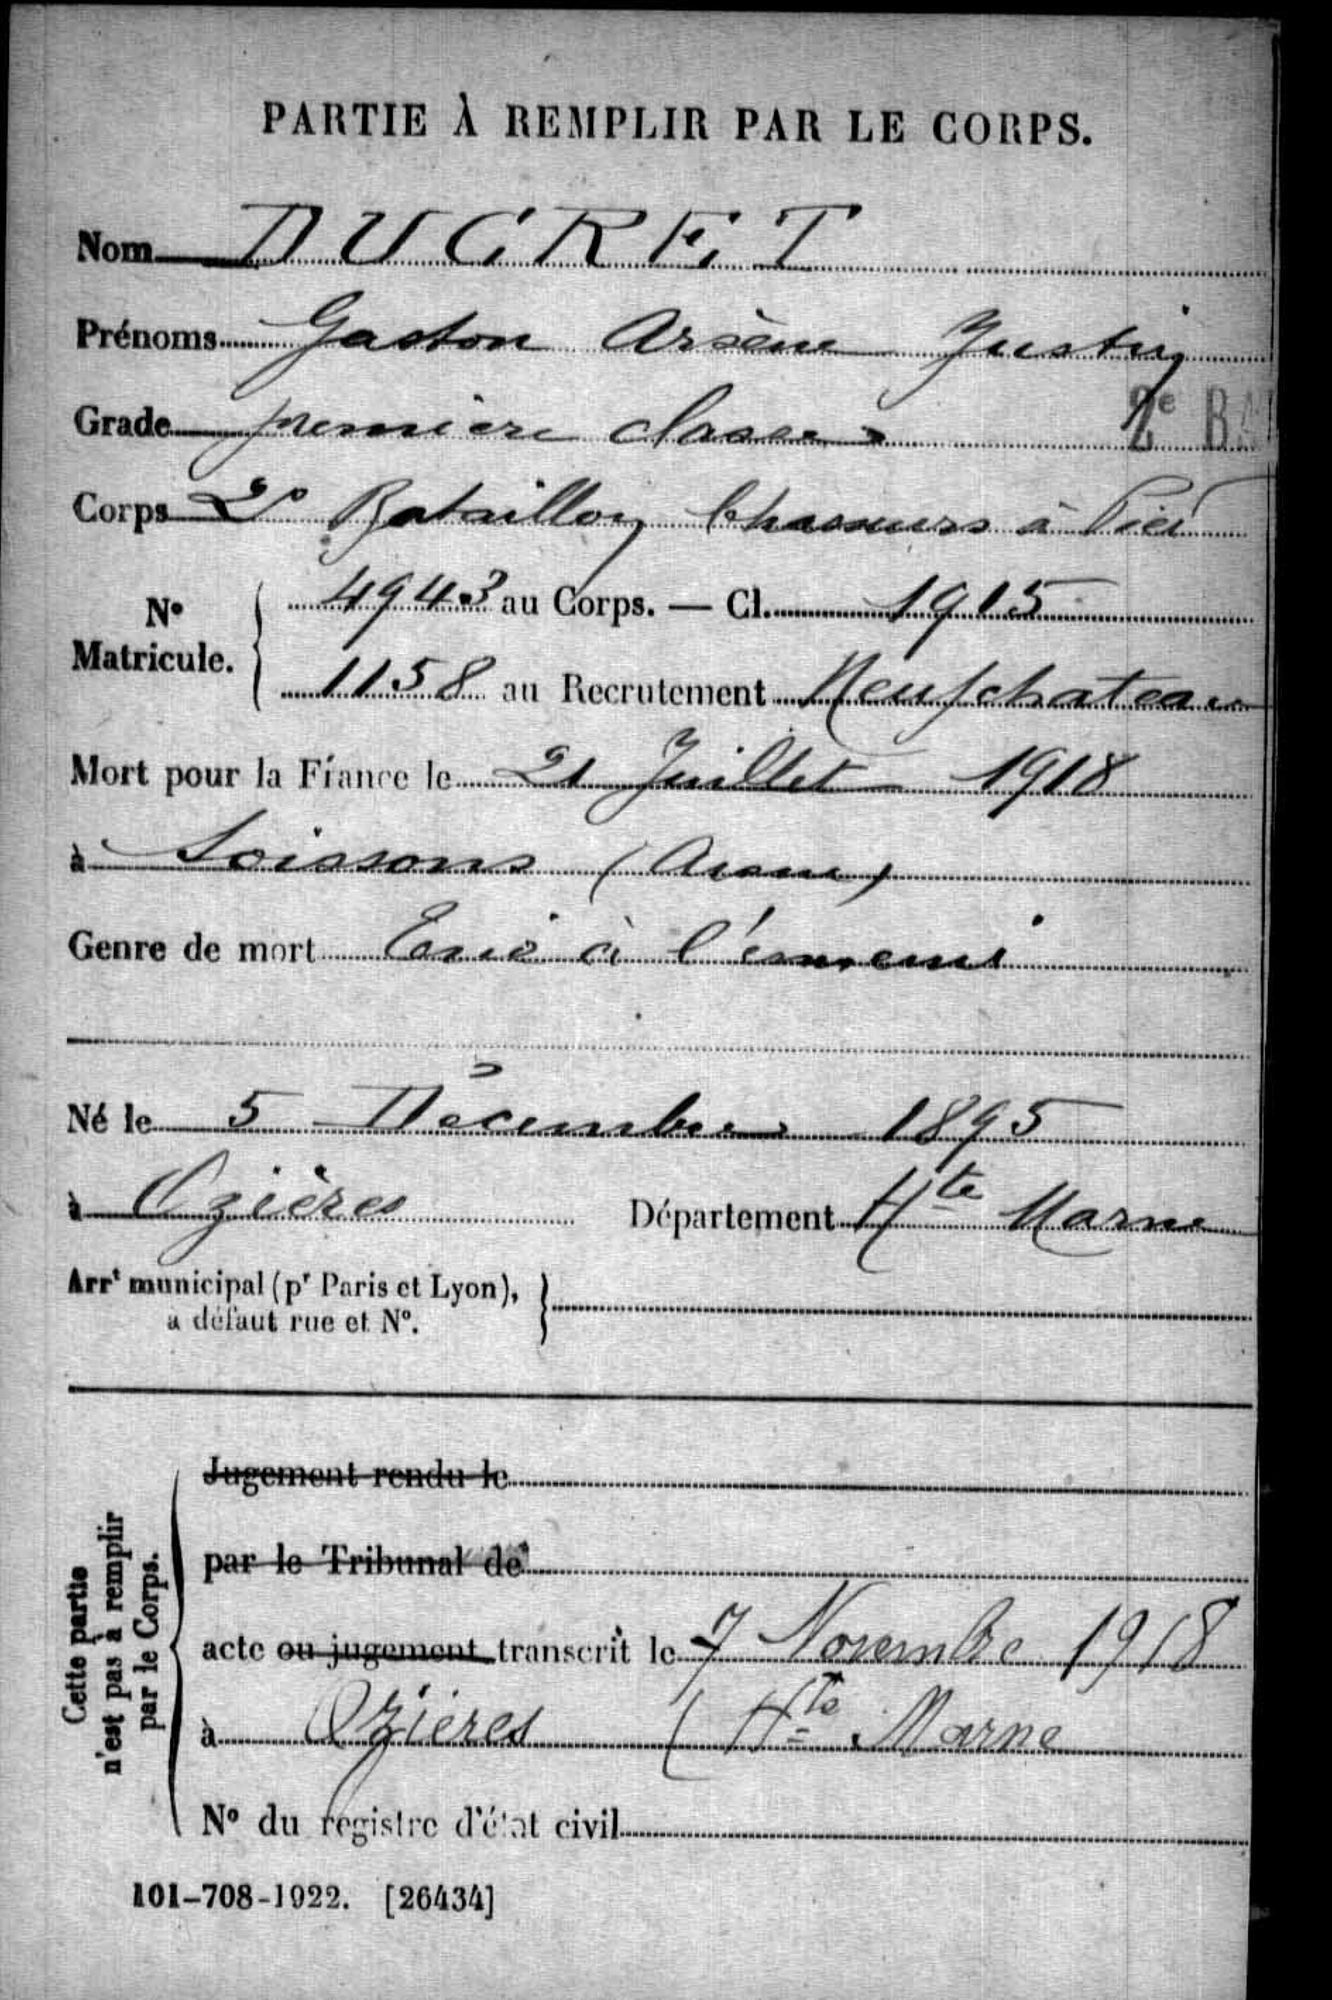 PARTIE À REMPLIR PAR LE CORPS.
Nom DUCRET
Prénoms Gaston Arsène Justin
Grade première classe
2e BA
Corps 2e Bataillon Chasseurs à Pied
No Matricule. 4943 au Corps. — Cl. 1915
1158 au Recrutement Neufchateau
Mort pour la France le 21 Juillet 1918
à Soissons (Aisne)
Genre de mort Tué à l'ennemi
Né le 5 Décembre 1895
à Ozières Département Hte Marne
Arrt municipal (pr Paris et Lyon),
à défaut rue et No.
Cette partie n'est pas à remplir par le Corps.
Jugement rendu le
par le Tribunal de
acte ou jugement transcrit le 7 Novembre 1918
à Ozières (Hte Marne
No du registre d'état civil
101-708-1922. [26434]